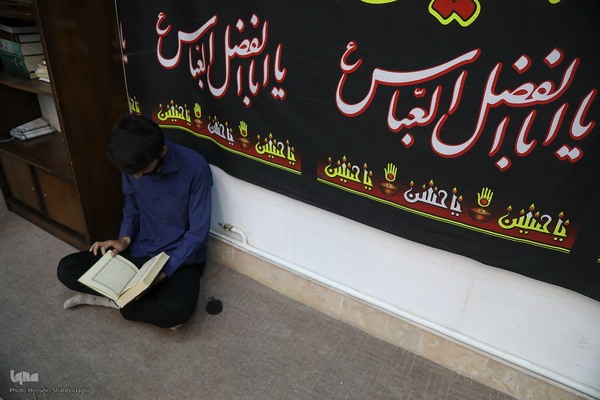 یا اباالفضل العباس ع
یا اباالفضل العباس ع
یا حسین یا حسین یا حسین
یا حسین یا حسین یا حسین
iqna
Photo: Hossein Shahbodaghi